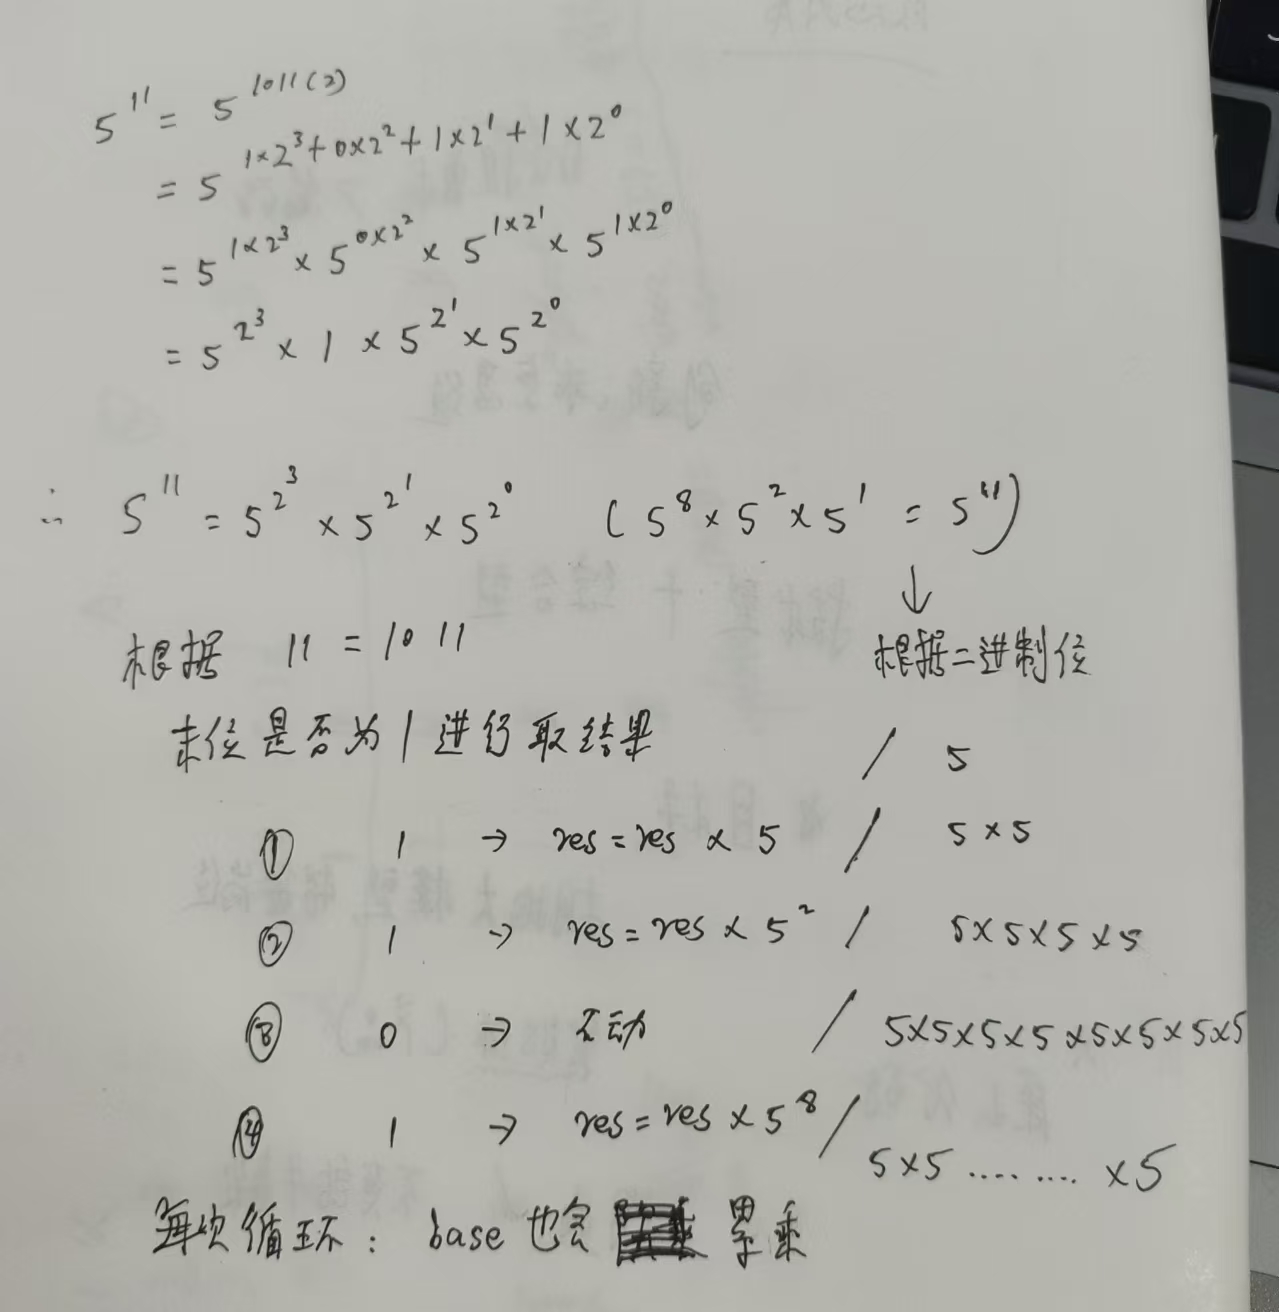 5¹¹ = 5^1011(2)
= 5^(1×2³+0×2²+1×2¹+1×2⁰)
= 5^(1×2³) × 5^(0×2²) × 5^(1×2¹) × 5^(1×2⁰)
= 5^2³ × 1 × 5^2¹ × 5^2⁰
∴ 5¹¹ = 5^2³ × 5^2¹ × 5^2⁰ (5⁸ × 5² × 5¹ = 5¹¹)
↓
根据 11 = 1011 根据二进制位
末位是否为1进行取结果 / 5
① 1 → res = res × 5 / 5×5
② 1 → res = res × 5² / 5×5×5×5
③ 0 → 不动 / 5×5×5×5×5×5×5×5
④ 1 → res = res × 5⁸ / 5×5 ........ ×5
每次循环: base 也会 累乘